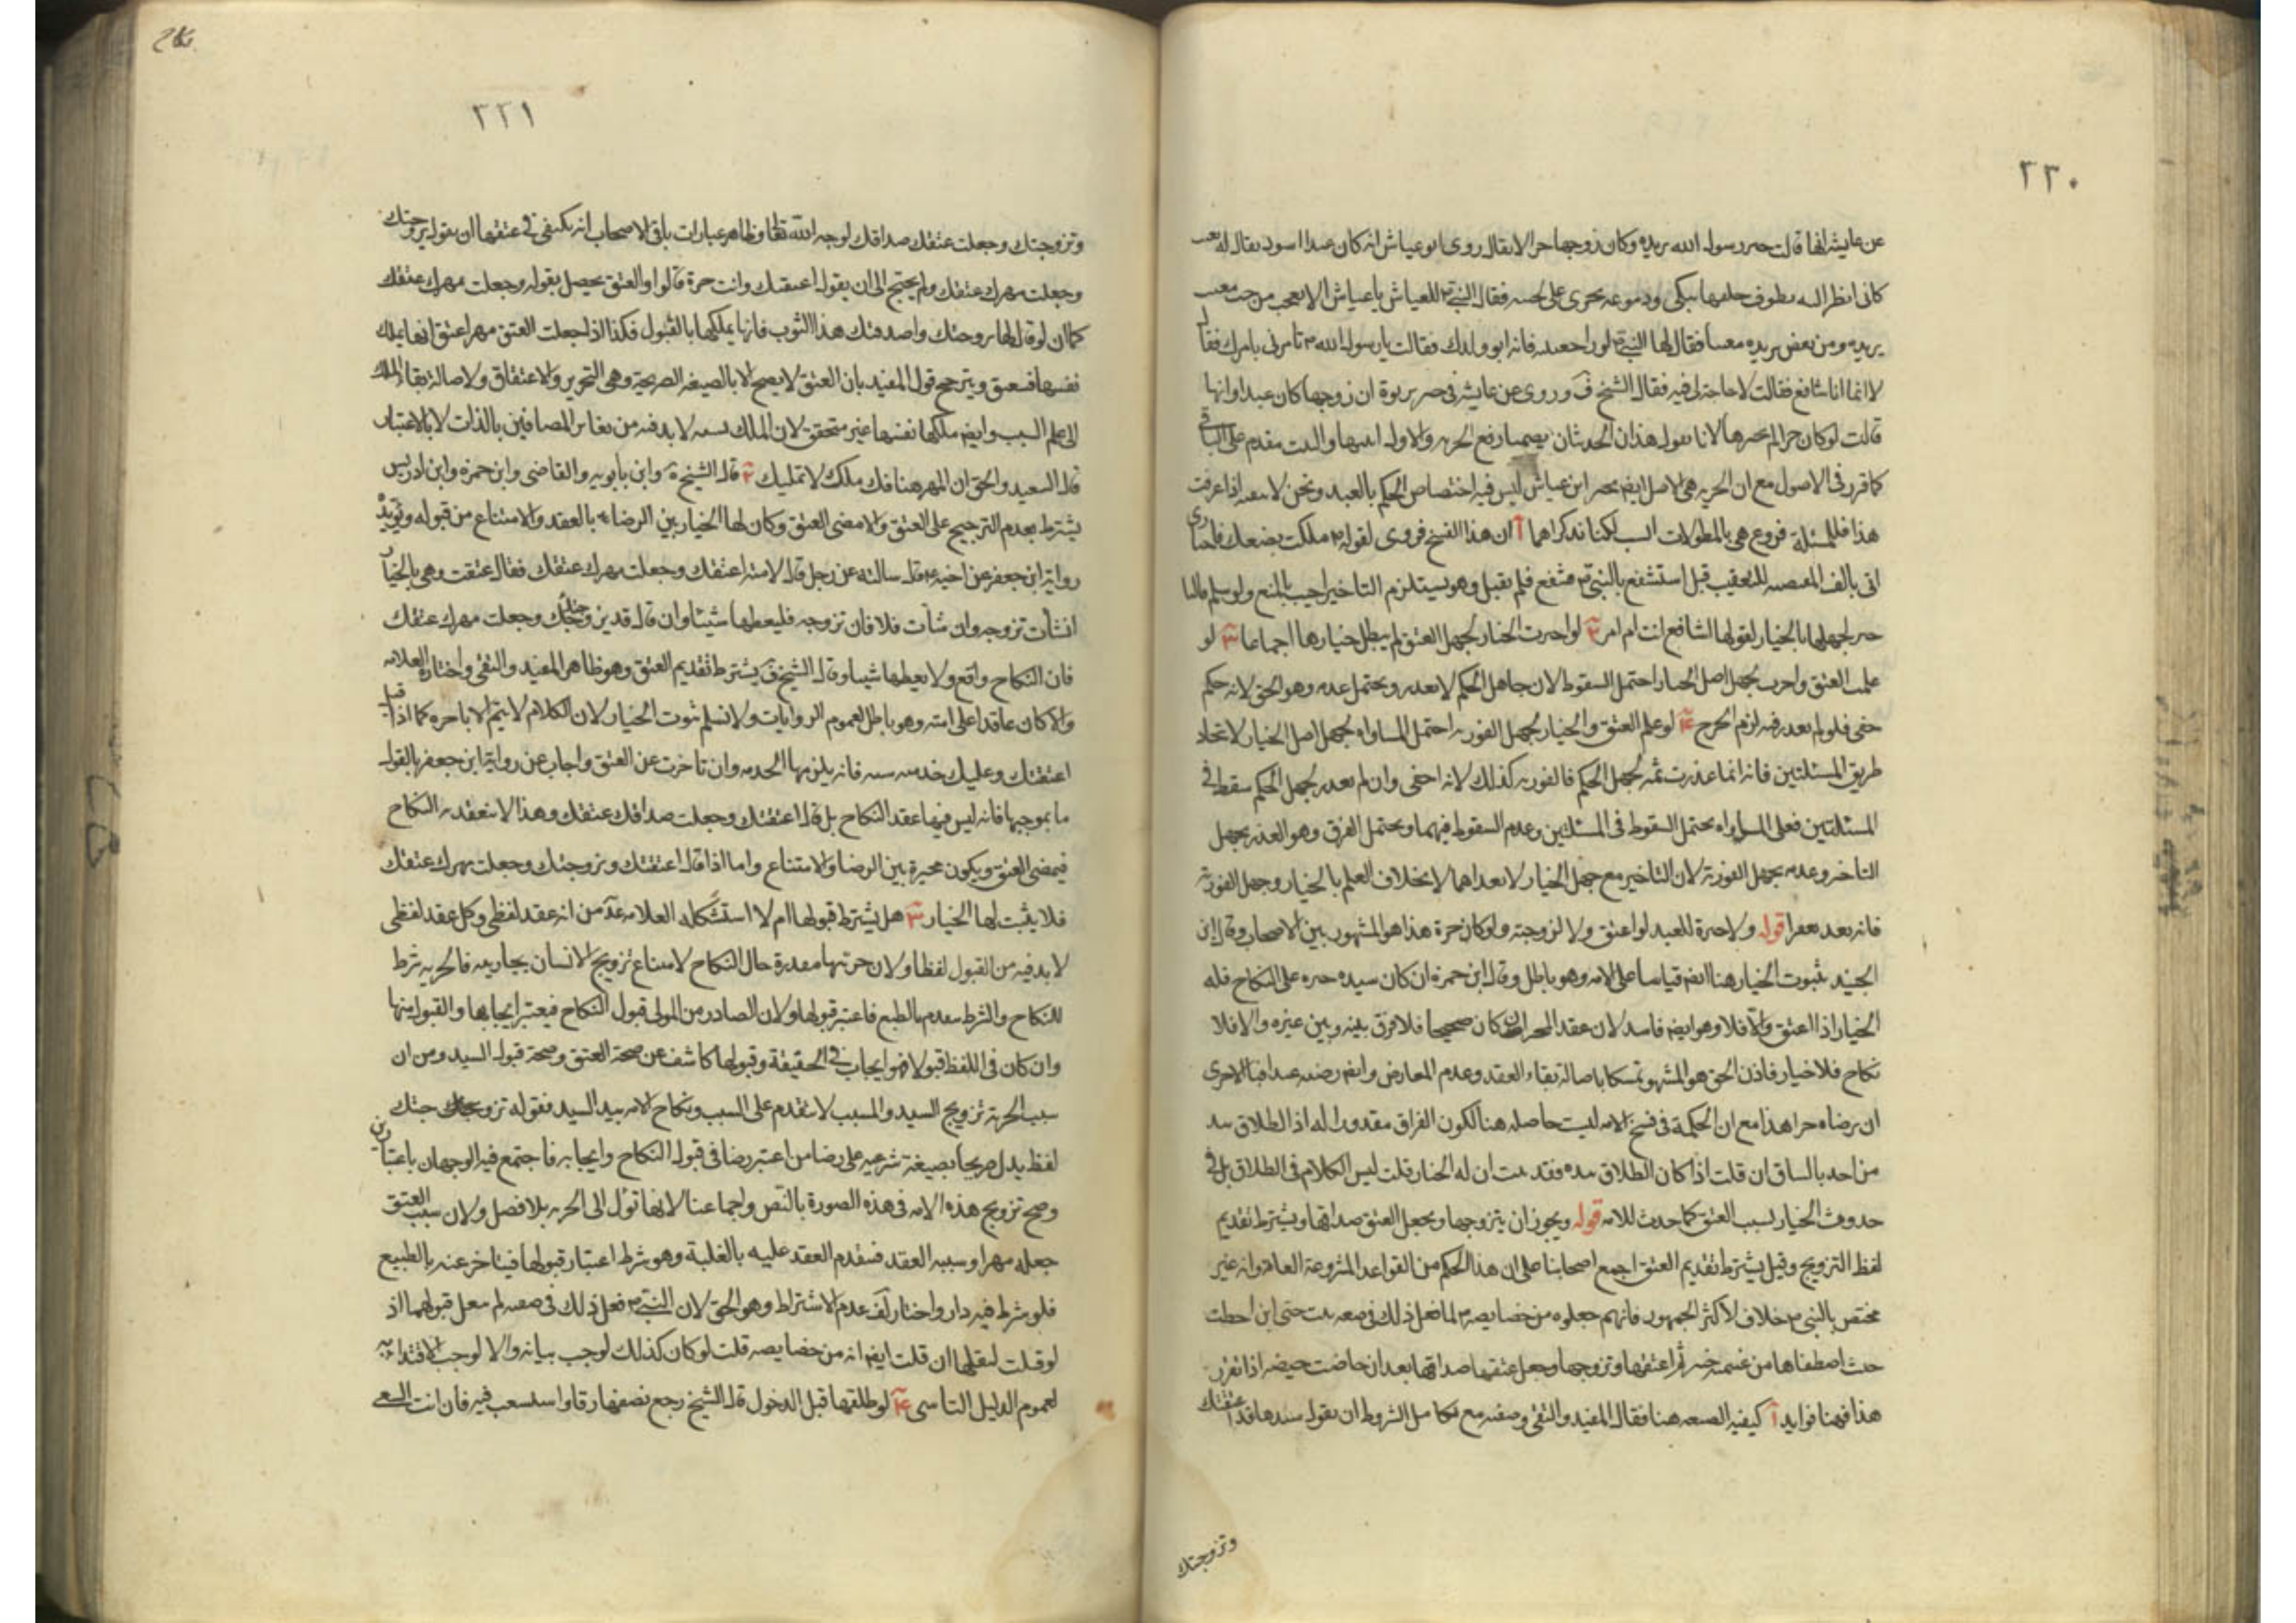 ٢٣٠
عن عايشة انها قالت خير رسول الله بريده وكان زوجها حرا لا يقال روى ابو عياش انه كان عبدا اسود يقال له
كانى انظر اليه يطوف خلفها يبكى ودموعه تجرى على لحيته فقال النبي للعياش يا عياش الا تعجب من حب
بريده ومن بغض بريده فقال لها النبي لو راجعتيه فانه ابو ولدك فقالت يا رسول الله تامرنى بامرك فقال
لا انما انا شافع فقالت لا حاجة لى فيه فقال الشيخ ف وروى عن عايشة فى خبر بريرة ان زوجها كان عبدا وانها
قالت لو كان حرا لم يخيرها لانا نقول هذان الحديثان رفع الحريه والاول والمثبت مقدم على الباقى
كما قرر فى الاصول مع ان الحريه هى الاصل ايضا خبر ابن عياش ليس فيه اختصاص الحكم بالعبد ونحن لا اذا عرفت
هذا فللمسئلة فروع هى بالمطولات انسب لكنا نذكر اهمها آ ان هذا الفسخ فورى لقوله ملكت بضعك فاختارى
اتى بالفاء للتعقيب قيل استشفع بالنبي فلم يقبل وهو يستلزم التاخير اجيب بالمنع ولو سلم فانها
لجهلها بالخيار لقولها الشافع انت ام امر ٢ لو اخرت الخيار لجهل العتق لم يبطل خيارها اجماعا ٣ لو
علمت العتق واخرت لجهل اصل الخيار احتمل السقوط لان جاهل الحكم لا يعذر ويحتمل عدمه وهو الحق لانه حكم
خفى فلو لم يعذر فيه لزم الحرج ٤ لو علم العتق والخيار لجهل الفوريه احتمل المساواه لجهل اصل الخيار لاتحاد
طريق المسئلتين فانه انما عذرت ثمه لجهل الحكم فالفوريه كذلك لانه اخفى وان لم يعذر لجهل الحكم سقط فى
المسئلتين فعلى المساواه يحتمل السقوط فى المسئلتين وعدم السقوط فيهما ويحتمل الفرق وهو العذر بجهل
التاخر وعدمه بجهل الفورية لان التاخير مع جهل الخيار لا بخلاف العلم بالخيار وجهل الفورية
فانه يعد قوله ولا خيرة للعبد لو اعتق ولا لزوجته ولو كان حرة هذا هو المشهور بين الاصحاب وقال ابن
الجنيد بثبوت الخيار هنا ايضا قياسا على الامه وهو باطل وقال ابن حمزه ان كان سيده جبره على النكاح فله
الخيار اذا اعتق والا فلا وهو ايضا فاسد لان عقد ان كان صحيحا فلا فرق بينه وبين غيره والا فلا
نكاح فلا خيار فاذن الحق هو المشهور تمسكا باصالة بقاء العقد وعدم المعارض وايضا رضيه عبدا فبالاحرى
ان يرضاه حرا هذا مع ان الحكمة فى فسخ الامه ليست حاصله هنا لكون الفراق مقدورا له اذ الطلاق بيد
من اخذ بالساق ان قلت اذا كان الطلاق بيده فقد ثبت ان له الخيار قلت ليس الكلام فى الطلاق بل فى
حدوث الخيار لسبب العتق كما حدث للامه قوله ويجوز ان يتزوجها ويجعل العتق صداقها ويشترط تقديم
لفظ التزويج وقيل يشترط تقديم العتق اجمع اصحابنا على ان هذا الحكم من القواعد المشروعة العامة وانه غير
مختص بالنبى خلاف لاكثر الجمهور فانهم جعلوه من خصايصه لما فعل ذلك فى صفيه بنت حيى ابن اخطب
حيث اصطفاها من غنيمة خيبر ثم اعتقها وتزوجها وجعل عتقها صداقها بعد ان حاضت حيضه اذا تقرر
هذا فهنا فوايد آ كيفيه الصيغه هنا فقال المفيد والتقى وصفته مع تكامل الشروط ان يقول سيدها قد اعتقتك
وتزوجتك
نكاح
٢٣١
وتزوجتك وجعلت عتقك صداقك لوجه الله تعالى وظاهر عبارات باقى الاصحاب انه يكتفى فى عتقها ان يقول تزوجتك
وجعلت مهرك عتقك ولم يحتج الى ان يقول اعتقتك وانت حرة قالوا والعتق يحصل بقوله وجعلت مهرك عتقك
كما ان لو قال لها تزوجتك واصدقتك هذا الثوب فانها يملكها بالقبول فكذا اذا جعلت العتق مهرا عتق انها يملك
نفسها فتعتق ويترجح قول المفيد بان العتق لا يصح الا بالصيغه الصريحة وهى التحرير والاعتاق ولاصالة بقاء الملك
الى علم السبب وايضا ملكها نفسها غير متحقق لان الملك نسبه لا بد فيه من تغاير المضافين بالذات لا بالاعتبار
قال السعيد والحق ان المهر هنا فك ملك لا تمليك ٢ قال الشيخ وابن بابويه والقاضى وابن حمزه وابن ادريس
يشترط بعدم الترجيح على العتق والا مضى العتق وكان لها الخيار بين الرضاء بالعقد والامتناع من قبوله ويؤيده
رواية ابن جعفر عن اخيه قال سالته عن رجل قال لامته اعتقتك وجعلت مهرك عتقك فقال عتقت وهى بالخيار
ان شاءت تزوجه وان شاءت فلا فان تزوجه فليعطها شيئا وان قال قد تزوجتك وجعلت مهرك عتقك
فان النكاح واقع ولا يعطيها شيئا وقال الشيخ ف يشترط تقديم العتق وهو ظاهر المفيد والتقى واختاره العلامه
والا كان عاقدا على امته وهو باطل لعموم الروايات ولا نسلم ثبوت الخيار لان الكلام لا يتم الا باخره كما اذا قيل
اعتقتك وعليك خدمه سنه فانه يلزمها الخدمه وان تاخرت عن العتق واجاب عن رواية ابن جعفر بالقول
ما بموجبها فانه ليس فيها عقد النكاح بل قال اعتقتك وجعلت صداقك عتقك وهذا لا ينعقد به النكاح
فيمضى العتق ويكون مخيرة بين الرضا والامتناع واما اذا قال اعتقتك وتزوجتك وجعلت مهرك عتقك
فلا يثبت لها الخيار ٣ هل يشترط قبولها ام لا استشكله العلامه عد من انه عقد لفظى وكل عقد لفظى
لا بد فيه من القبول لفظا ولان حريتها مقدرة حال النكاح لامتناع تزويج الانسان بجاريته فالحريه شرط
للنكاح والشرط مقدم بالطبع فاعتبر قبولها ولان الصادر من المولى قبول النكاح فيعتبر ايجابها والقبول منها
وان كان فى اللفظ قبولا فهو ايجاب فى الحقيقة وقبولها كاشف عن صحة العتق وصحة قبول السيد ومن ان
سبب الحرية تزويج السيد والمسبب لا يتقدم على السبب ونكاح الامه بيد السيد فقوله تزوجتك
لفظ يدل صريحا بصيغة شرعيه على رضا من اعتبر رضا فى قبول النكاح وايجابه فاجتمع فيه الوجهان باعتبارين
وصح تزويج هذه الامه فى هذه الصورة بالنص واجماعنا لانها تؤل الى الحريه بلا فصل ولان سبب العتق
جعله مهرا وسببه العقد فيتقدم العقد عليه بالغلبة وهو شرط اعتبار قبولها فيتاخر عنه بالطبع
فلو شرط فيه دار واختار لف عدم الاشتراط وهو الحق لان النبي فعل ذلك فى صفيه لم ينقل قبولها اذ
لو قبلت لنقلها ان قلت ايضا انه من خصايصه قلت لو كان كذلك لوجب بيانه والا لوجب الاقتداء به
لعموم الدليل التاسى ٤ لو طلقها قبل الدخول قال الشيخ رجع نصفها رقا واستسعيت فيه فان ابت السعى